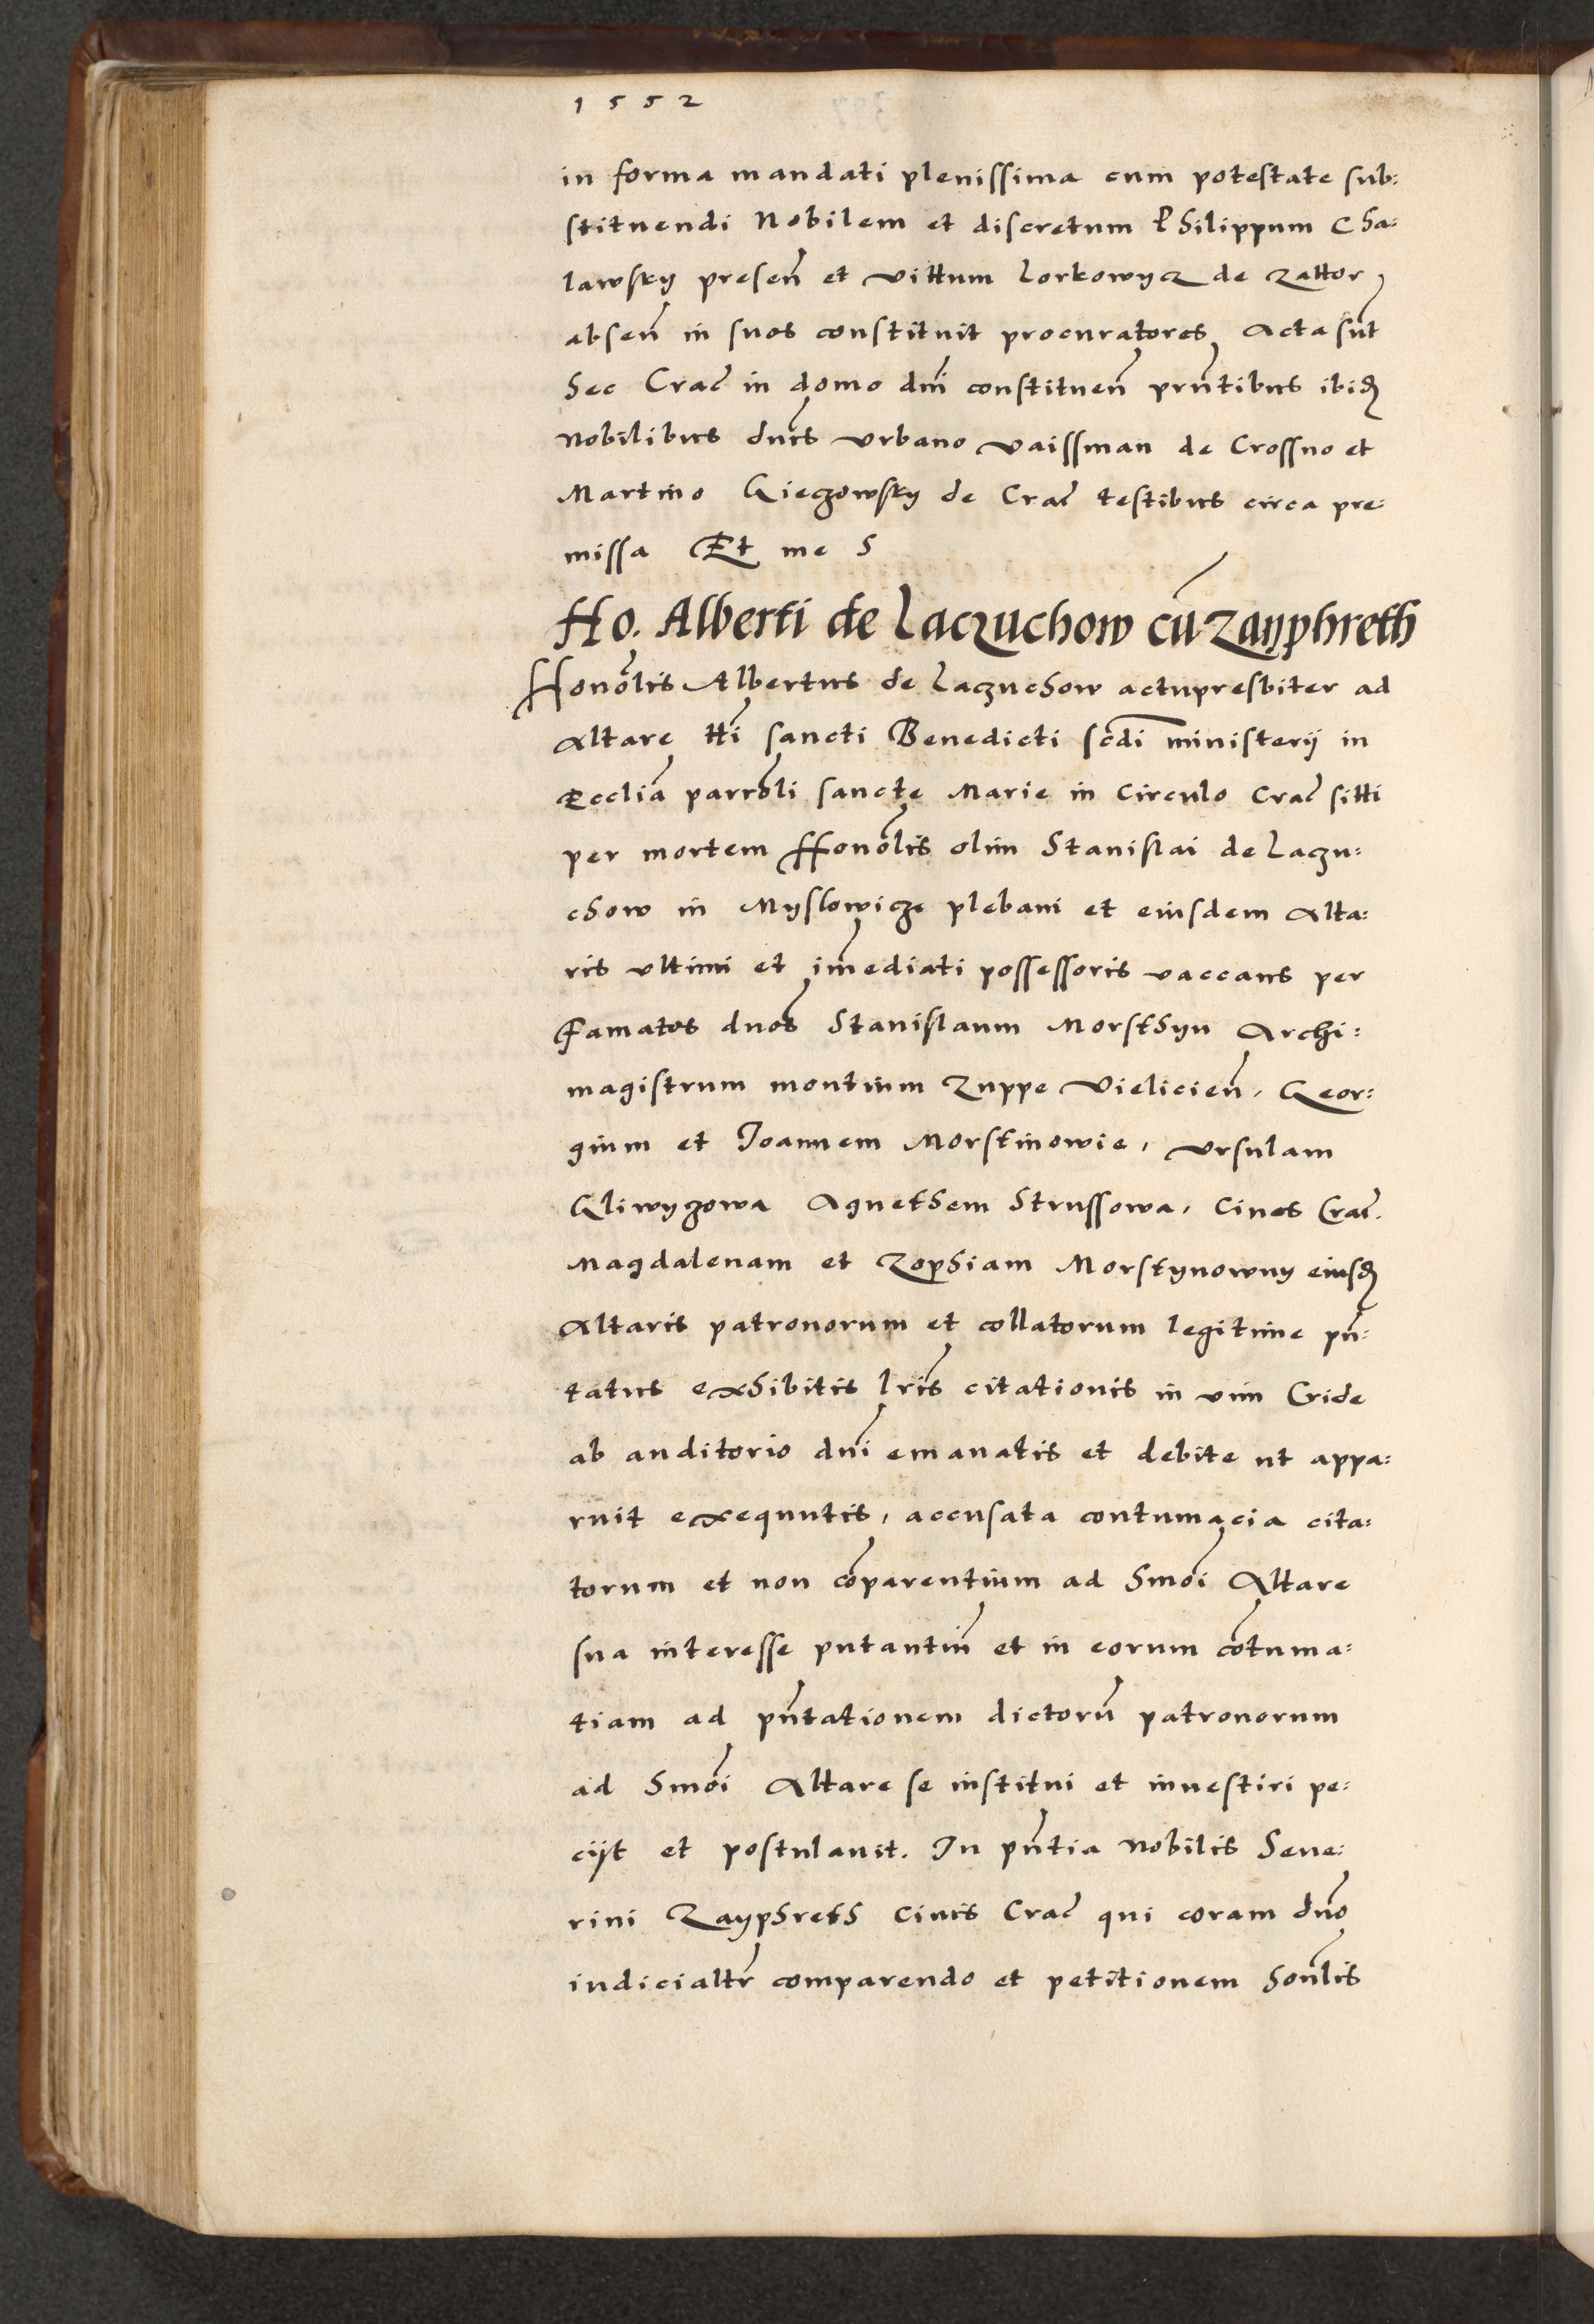 1552
in forma mandati plenissima cum potestate sub:
stituendi Nobilem et discretum Philippum Cha:
lawsky presen̄ et vittum Lorkowycz de Zattor
absen̄ in suos constituit procuratores, Acta sūt
hec Crac̄ in domo dn̄i constituen̄ prn̄tibus ibid̄
Nobilibus dn̄is Urbano Vaissman de Crossno et
Martino Gieczowsky de Crac̄ testibus circa pre:
missa Et me S
Ho. Alberti de Laczuchow cū Zayphreth
Honōlis Albertus de Laczuchow actupresbiter ad
Altare tti̅ sancti Benedicti scd̄i ministerij in
Ecclia̅ parrōli sancte Marie in Circulo Crac̄ sitti
per mortem Honōlis olim Stanislai de Laczu:
chow in Myslowicze plebani et eiusdem Alta:
ris ultimi et im̄ediati possessoris vaccans per
Famatos dn̄os Stanislaum Morsthyn Archi:
magistrum montium Zuppe Vielicien̄, Geor:
gium et Joannem Morstinowie, Ursulam
Gliwyczowa Agnethem Strussowa, Cives Crac̄.
Magdalenam et Zophiam Morstynowny eiusd̄
Altaris patronorum et collatorum legitime pn̄:
tatus exhibitis lr̄is citationis in vim Cride
ab auditorio dn̄i emanatis et debite ut appa:
ruit exequutis, accusata contumacia cita:
torum et non cōparentium ad hmōi Altare
sua interesse putantiū et in eorum cōtuma:
tiam ad pn̄tationem dictorū patronorum
ad hmōi Altare se institui et investiri pe:
cijt et postulavit. In pn̄tia Nobilis Seve:
rini Zayphreth Civis Crac̄ qui coram dn̄o
iudicialtr̄ comparendo et petitionem hon̄lis